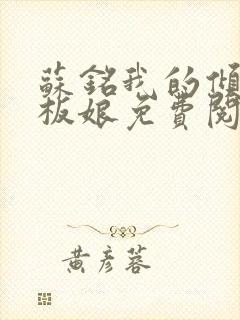 蘇銘我的傾
板娘免費閱
黃彥蓉